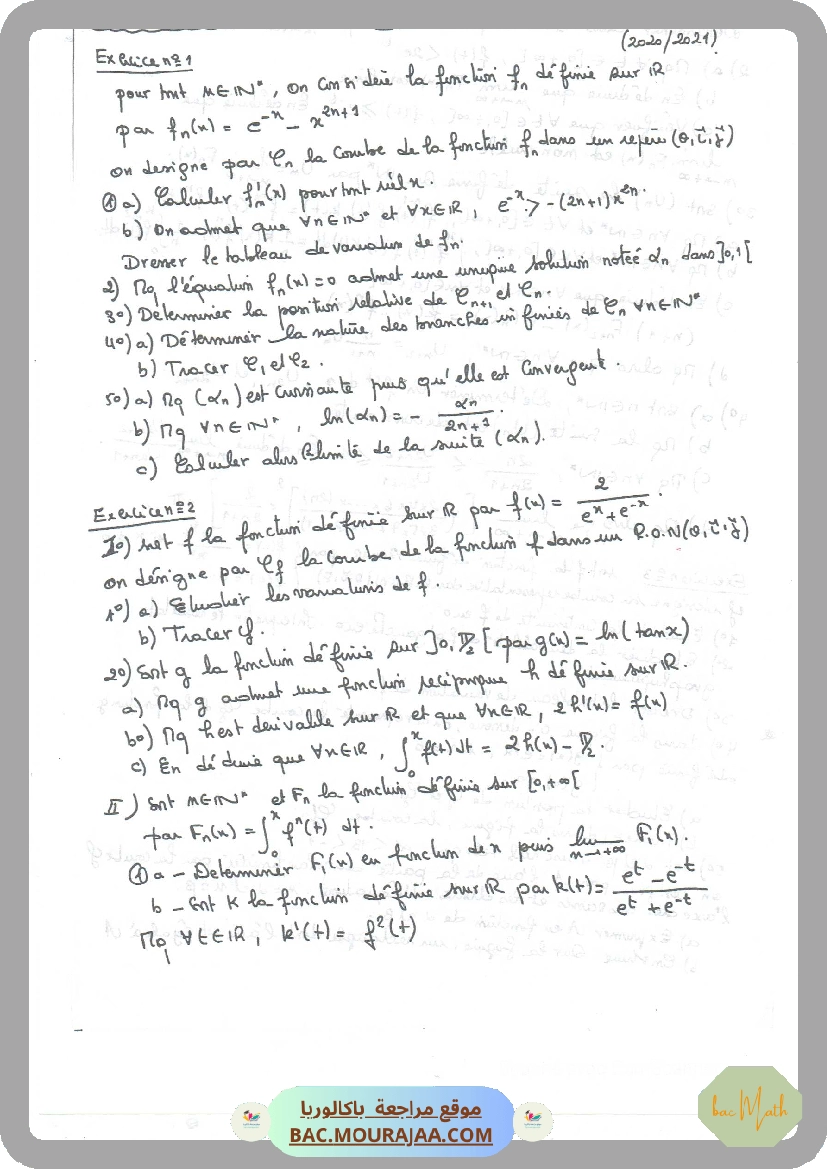 (2020/2021)
Exercice n≡1
pour tout n∈IN*, on considère la fonction fn définie sur IR
par fn(x) = e^-x - x^2n+1
on designe par Cn la courbe de la fonction fn dans un repère (O,i⃗,j⃗)
① a) Calculer f'n(x) pour tout réel x.
b) on admet que ∀n∈IN* et ∀x∈IR, e^-x > -(2n+1)x^2n.
Dresser le tableau de variation de fn.
2) Mq l'équation fn(x)=0 admet une unique solution notée αn dans ]0,1[
3°) Déterminer la position relative de Cn+1 et Cn.
4°) a) Déterminer la nature des branches infinies de Cn ∀n∈IN*
b) Tracer C1 et C2.
5°) a) Mq (αn) est croissante puis qu'elle est convergente.
b) Mq ∀n∈IN*, ln(αn) = - αn/2n+1.
c) Calculer alors la limite de la suite (αn).
Exercice n≡2
I°) soit f la fonction définie sur IR par f(x) = 2/(e^x+e^-x).
on désigne par Cf la courbe de la fonction f dans un R.O.N(O,i⃗,j⃗)
1°) a) Etudier les variations de f.
b) Tracer Cf.
2°) Soit g la fonction définie sur ]0,π/2[ par g(x) = ln(tanx)
a) Mq g admet une fonction réciproque h définie sur IR.
b°) Mq h est derivable sur IR et que ∀x∈IR, 2h'(x) = f(x)
c) En déduire que ∀x∈IR, ∫₀ˣ f(t)dt = 2h(x) - π/2.
II) Soit n∈IN* et Fn la fonction définie sur [0,+∞[
par Fn(x) = ∫₀ˣ fⁿ(t) dt.
① a - Determiner F1(x) en fonction de x puis lim x→+∞ F1(x).
b - Soit k la fonction définie sur IR par k(t) = (e^t - e^-t)/(e^t + e^-t)
Mq ∀t∈IR, k'(t) = f²(t)
موقع مراجعة باكالوريا
BAC.MOURAJAA.COM
bac Math